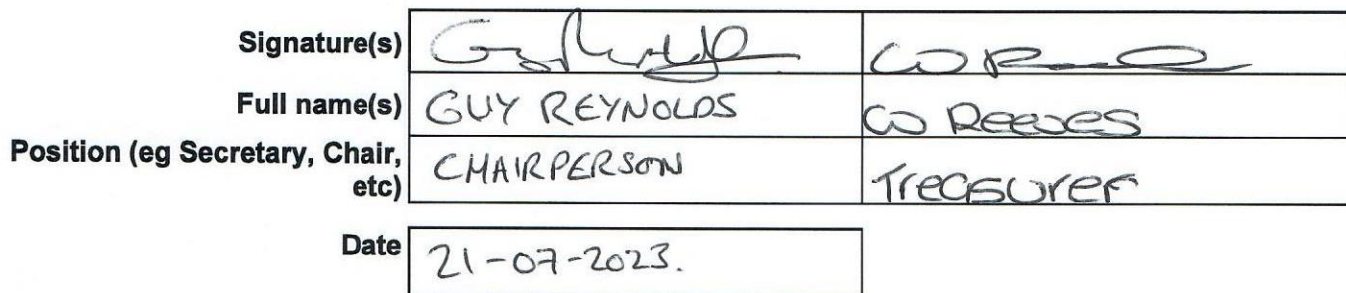 Signature(s)
Full name(s) GUY REYNOLDS W Reeves
Position (eg Secretary, Chair, etc) CHAIRPERSON Treasurer
Date 21-07-2023.